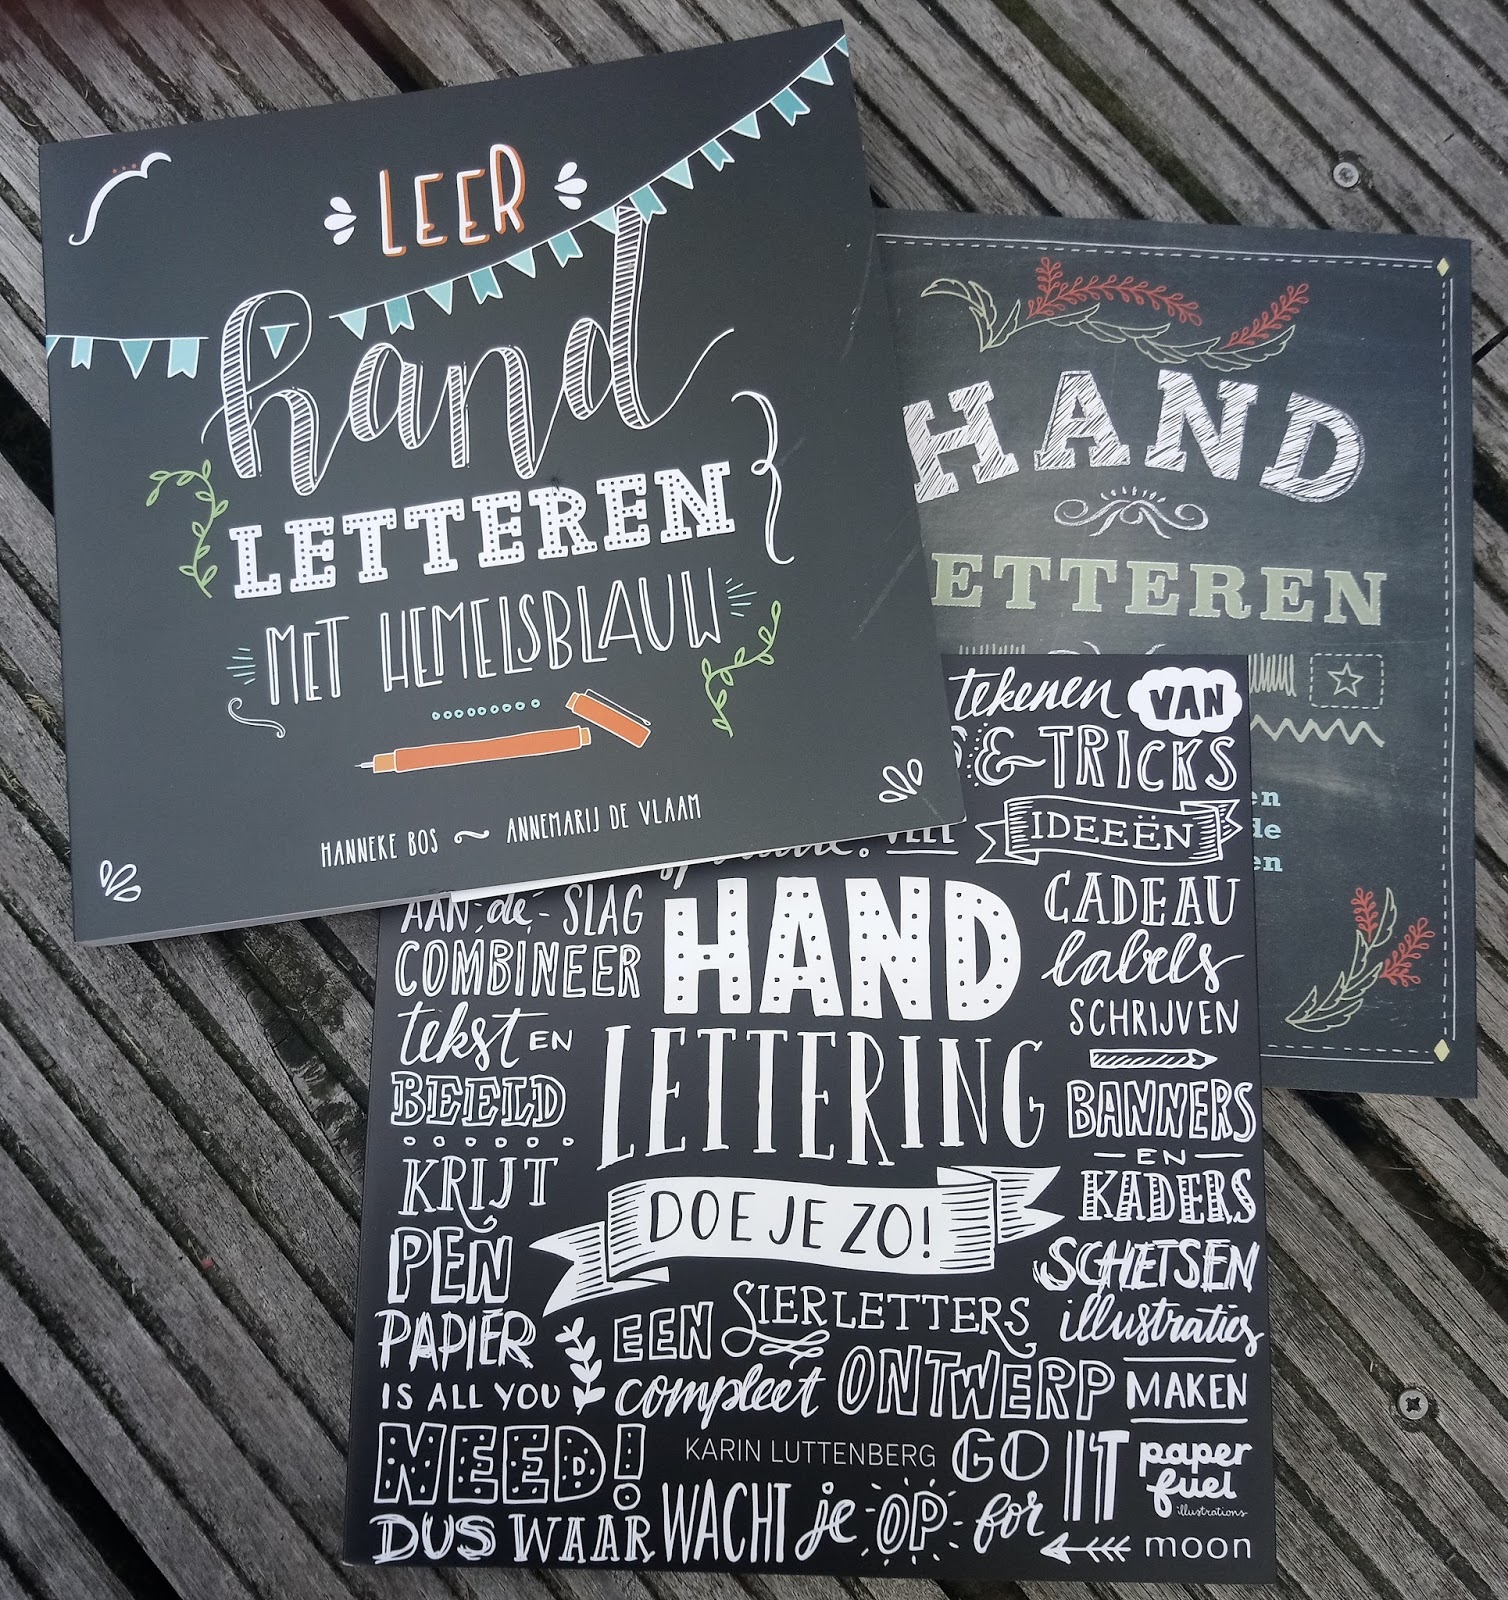 LEER
hand
LETTEREN
MET HEMELSBLAUW
HANNEKE BOS ~ ANNEMARIJ DE VLAAM
HAND
ETTEREN
en
de
en
tekenen VAN
& TRICKS
IDEEËN
VEEL
AAN de SLAG
COMBINEER
tekst EN
BEELD
KRIJT
PEN
PAPIER
IS ALL YOU
NEED!
DUS WAAR WACHT je OP
HAND
LETTERING
DOE JE ZO!
CADEAU
labels
SCHRIJVEN
BANNERS
EN
KADERS
SCHETSEN
illustraties
EEN SIERLETTERS
compleet ONTWERP MAKEN
KARIN LUTTENBERG
GO
for IT
paper
fuel
illustrations
moon